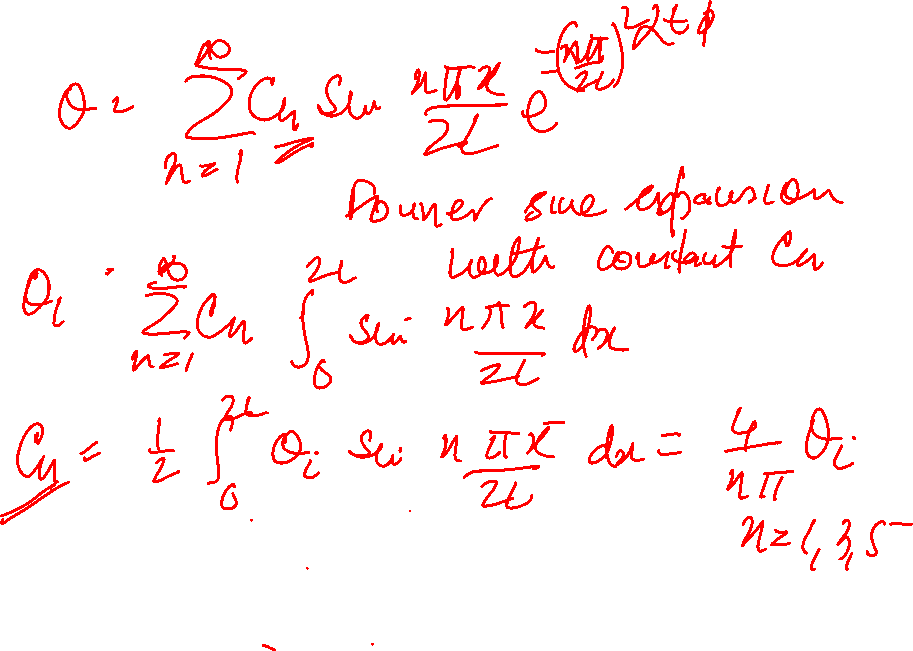 θ = ∑_{n=1}^{∞} C_n Sin \frac{nπx}{2L} e^{-(\frac{nπ}{2L})^2 αt}
Fourier sine expansion
with constant C_n
θ_i = ∑_{n=1}^{∞} C_n ∫_0^{2L} sin \frac{nπx}{2L} dx
C_n = \frac{1}{2} ∫_0^{2L} θ_i Sin \frac{nπx}{2L} dx = \frac{4}{nπ} θ_i
n=1,3,5